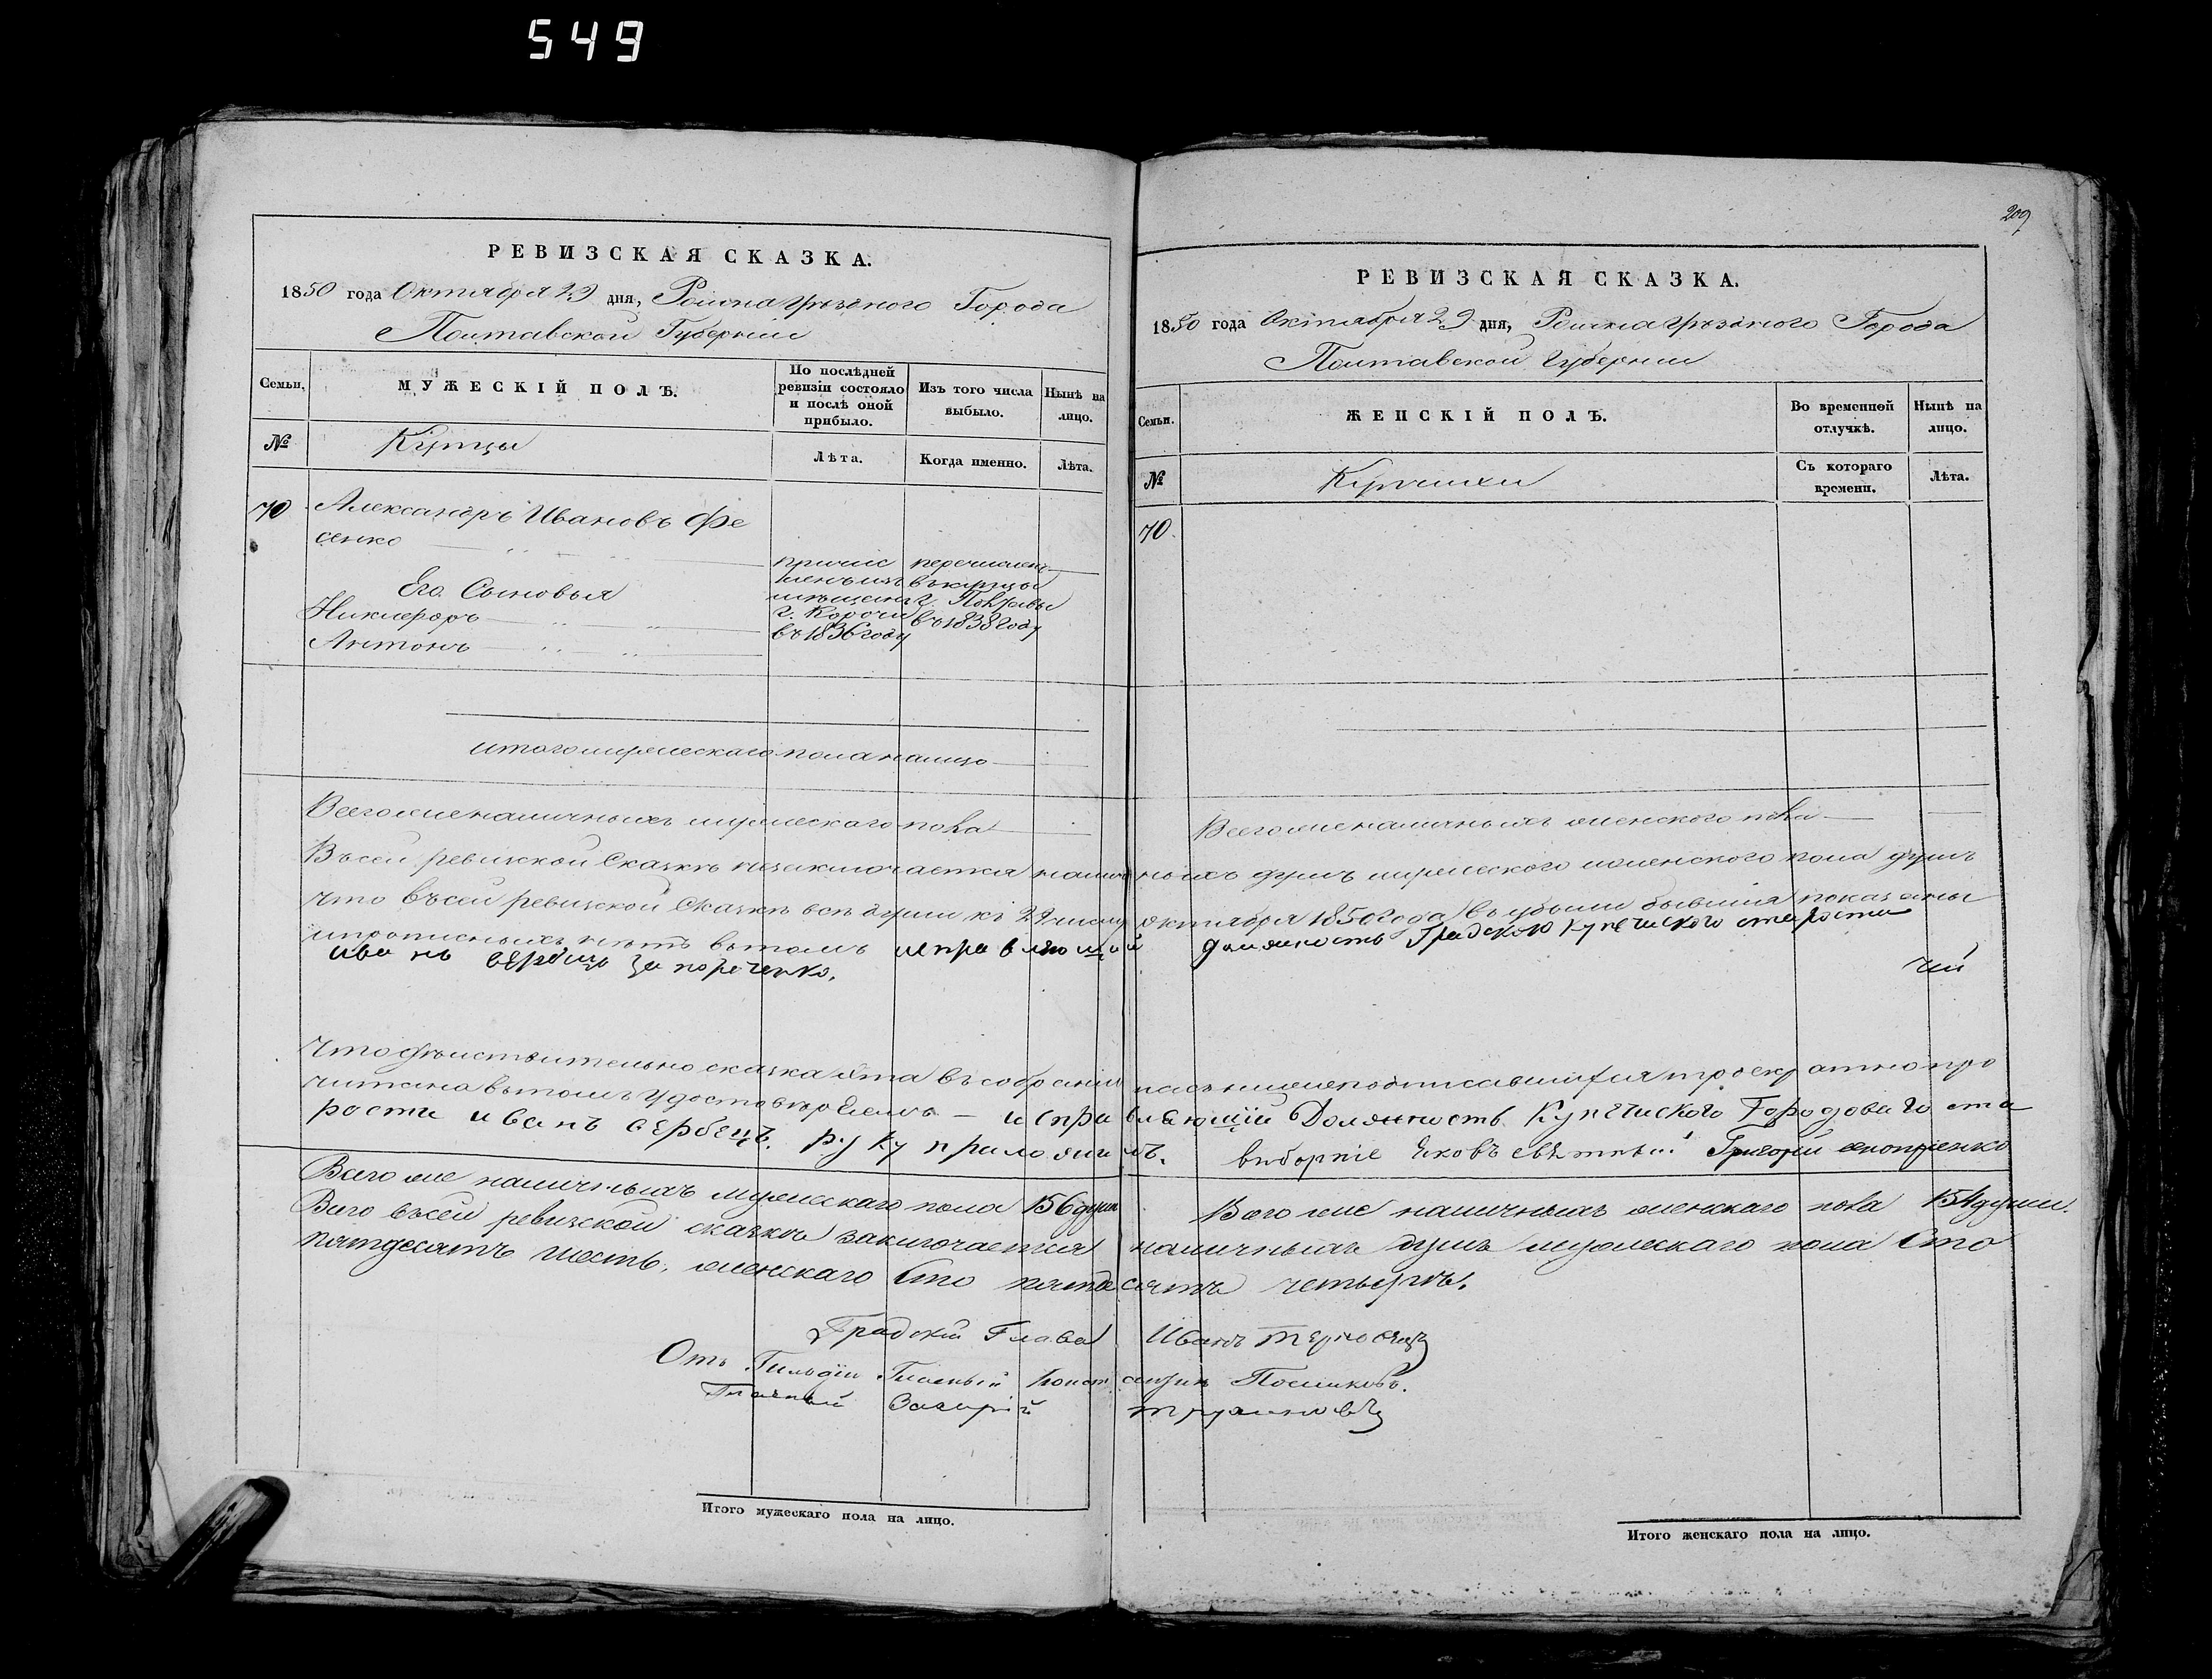 549
209
РЕВИЗСКАЯ СКАЗКА.
1850 года Октября 29 дня, Ромна уѣзднаго Города
Полтавской Губерніи
Семьи.
МУЖЕСКІЙ ПОЛЪ.
По послѣдней ревизіи состояло и послѣ оной прибыло.
Изъ того числа выбыло.
Нынѣ на лицо.
№
Купцы
Лѣта.
Когда именно.
Лѣта.
70
Александръ Ивановъ Фе
сенко
Его Сыновья
Никифоръ
Антонъ
причис
ленъ изъ
мѣщанъ
г. Корочи
въ 1836 году
перечислен
въ купцы
г. Полтавы
въ 1838 году
итого мужескаго пола налицо
Всего же наличныхъ мужескаго пола
РЕВИЗСКАЯ СКАЗКА.
1850 года Октября 29 дня, Ромна уѣзднаго Города
Полтавской Губерніи
Семьи.
ЖЕНСКІЙ ПОЛЪ.
Во временной отлучкѣ.
Нынѣ на лицо.
№
Купчихи
Съ котораго времени.
Лѣта.
70.
Всего же наличныхъ женского пола
Въ сей ревизкой Сказкѣ заключается наличныхъ душъ мужеского женского пола душъ
что въ сей ревизкой Сказкѣ всѣ души къ 29 числу октября 1850 года въ убыли бывшія показаны
и прописныхъ нѣтъ вътомъ исправляющой должность Градского купеческого старости
иванъ
что действительно сказка эта въ собраніи насъ нижеподписавшихся троекратно про
читана вътомъ удостовѣряемъ — исправляющій Должность Купечиского Городоваго ста
рости иванъ сербецъ. руку приложилъ. виборніе Яковъ Григорій
Всего же наличныхъ мужескаго пола 156 душъ
Всего же наличныхъ женскаго пола 154 души.
Всего въ сей ревизской сказкѣ заключается наличныхъ душъ мужескаго пола Сто
пятдесятъ шесть, женскаго Сто пятдесятъ четыре.
Градскій Глава Иванъ
Отъ Гильдіи Гласный Конст
Гласный Захарій
Итого мужескаго пола на лицо.
Итого женскаго пола на лицо.